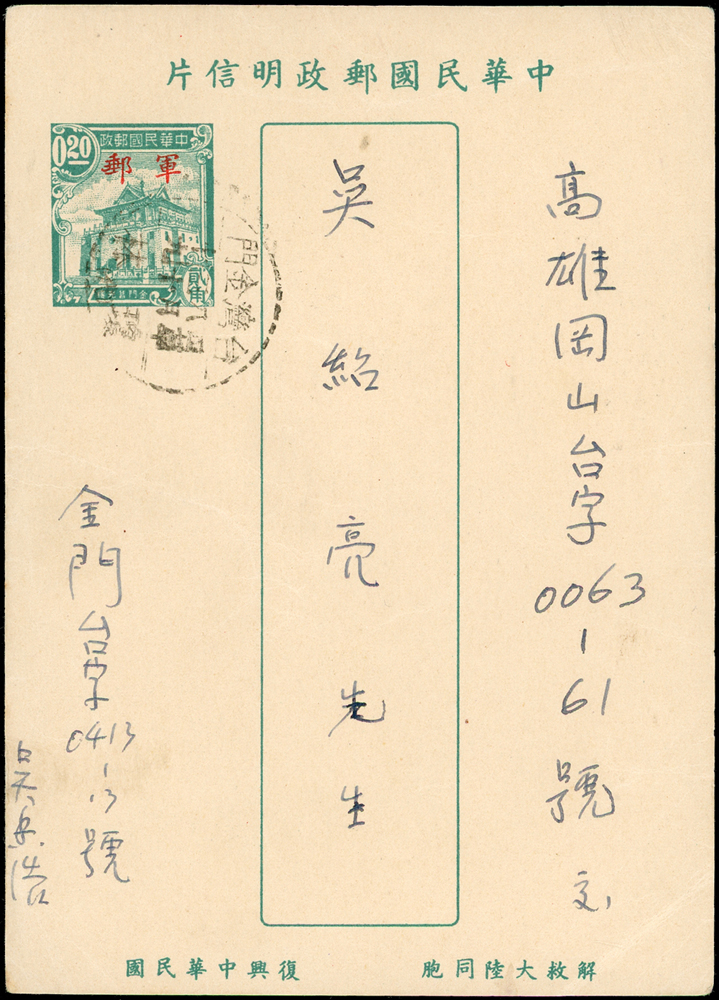 片信明政郵國民華中
政郵國民華中
0.20
郵軍
貳角
台灣金門
高雄岡山台字0063-61號交
吳紹亮先生
金門台字0413-13號
國民華中興復
胞同陸大救解